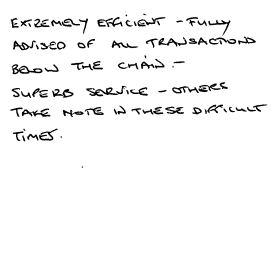 EXTREMELY EFFICIENT - FULLY
ADVISED OF ALL TRANSACTIONS
BELOW THE CHAIN -
SUPERB SERVICE - OTHERS
TAKE NOTE IN THESE DIFFICULT
TIMES.